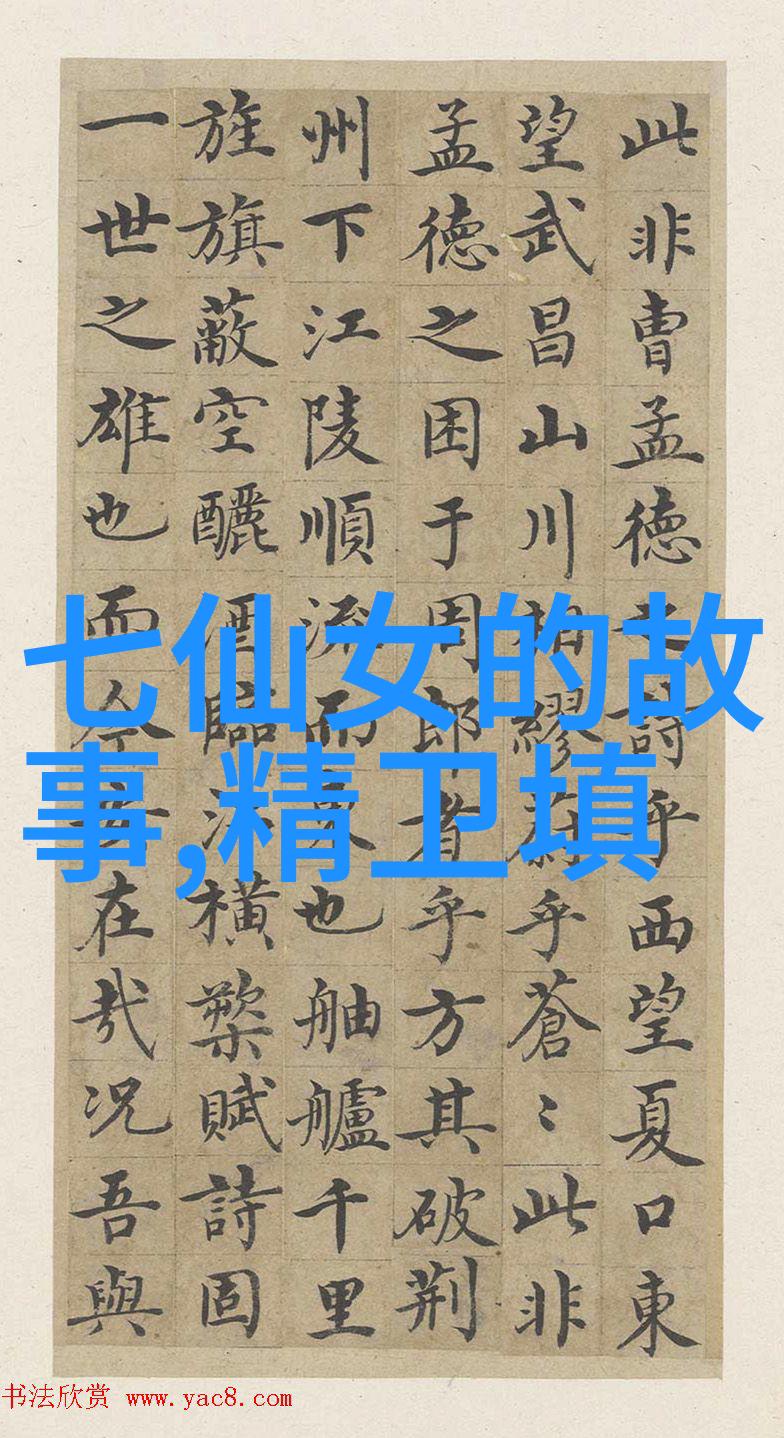 此非曹孟德之詩乎西望夏口東
望武昌山川相繆乎蒼〻此非
孟德之困于周郎者乎方其破荆
州下江陵順流而東也舳艫千里
旌旗蔽空釃酒臨江橫槊賦詩固
一世之雄也而今安在哉況吾與
七仙女的故
事,精卫填
书法欣赏 www.yac8.com